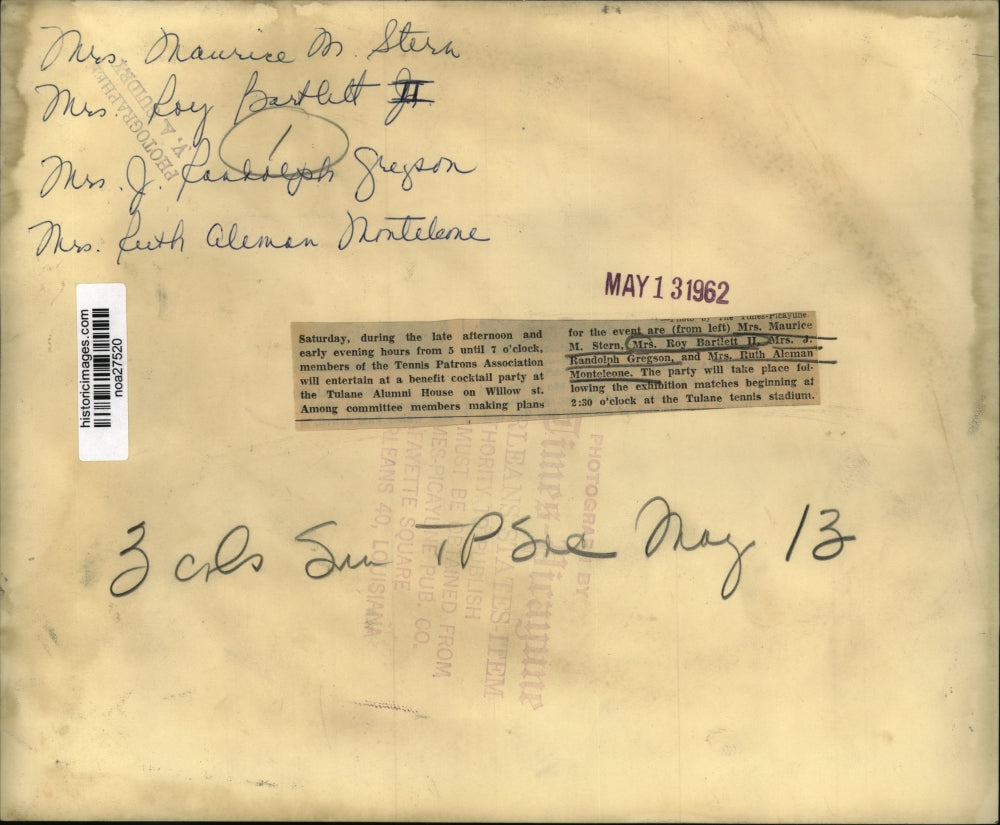 Mrs. Maurice M. Stern
Mrs. Roy Bartlett II
Mrs. J. Randolph Gregson
Mrs. Ruth Aleman Monteleone
1
PHOTOGRAPHER
V. A. GUIDRY
MAY 13 1962
historicimages.com
noa27520
Saturday, during the late afternoon and
early evening hours from 5 until 7 o'clock,
members of the Tennis Patrons Association
will entertain at a benefit cocktail party at
the Tulane Alumni House on Willow st.
Among committee members making plans
—Photo by The Times-Picayune.
for the event are (from left) Mrs. Maurice
M. Stern, Mrs. Roy Bartlett II, Mrs. J.
Randolph Gregson, and Mrs. Ruth Aleman
Monteleone. The party will take place fol-
lowing the exhibition matches beginning at
2:30 o'clock at the Tulane tennis stadium.
PHOTOGRAPH BY
Times-Picayune
ORLEANS STATES-ITEM
AUTHORITY TO PUBLISH
MUST BE OBTAINED FROM
TIMES-PICAYUNE PUB. CO.
LAFAYETTE SQUARE
ORLEANS 40, LOUISIANA
3 cols Sun TP Soc May 13